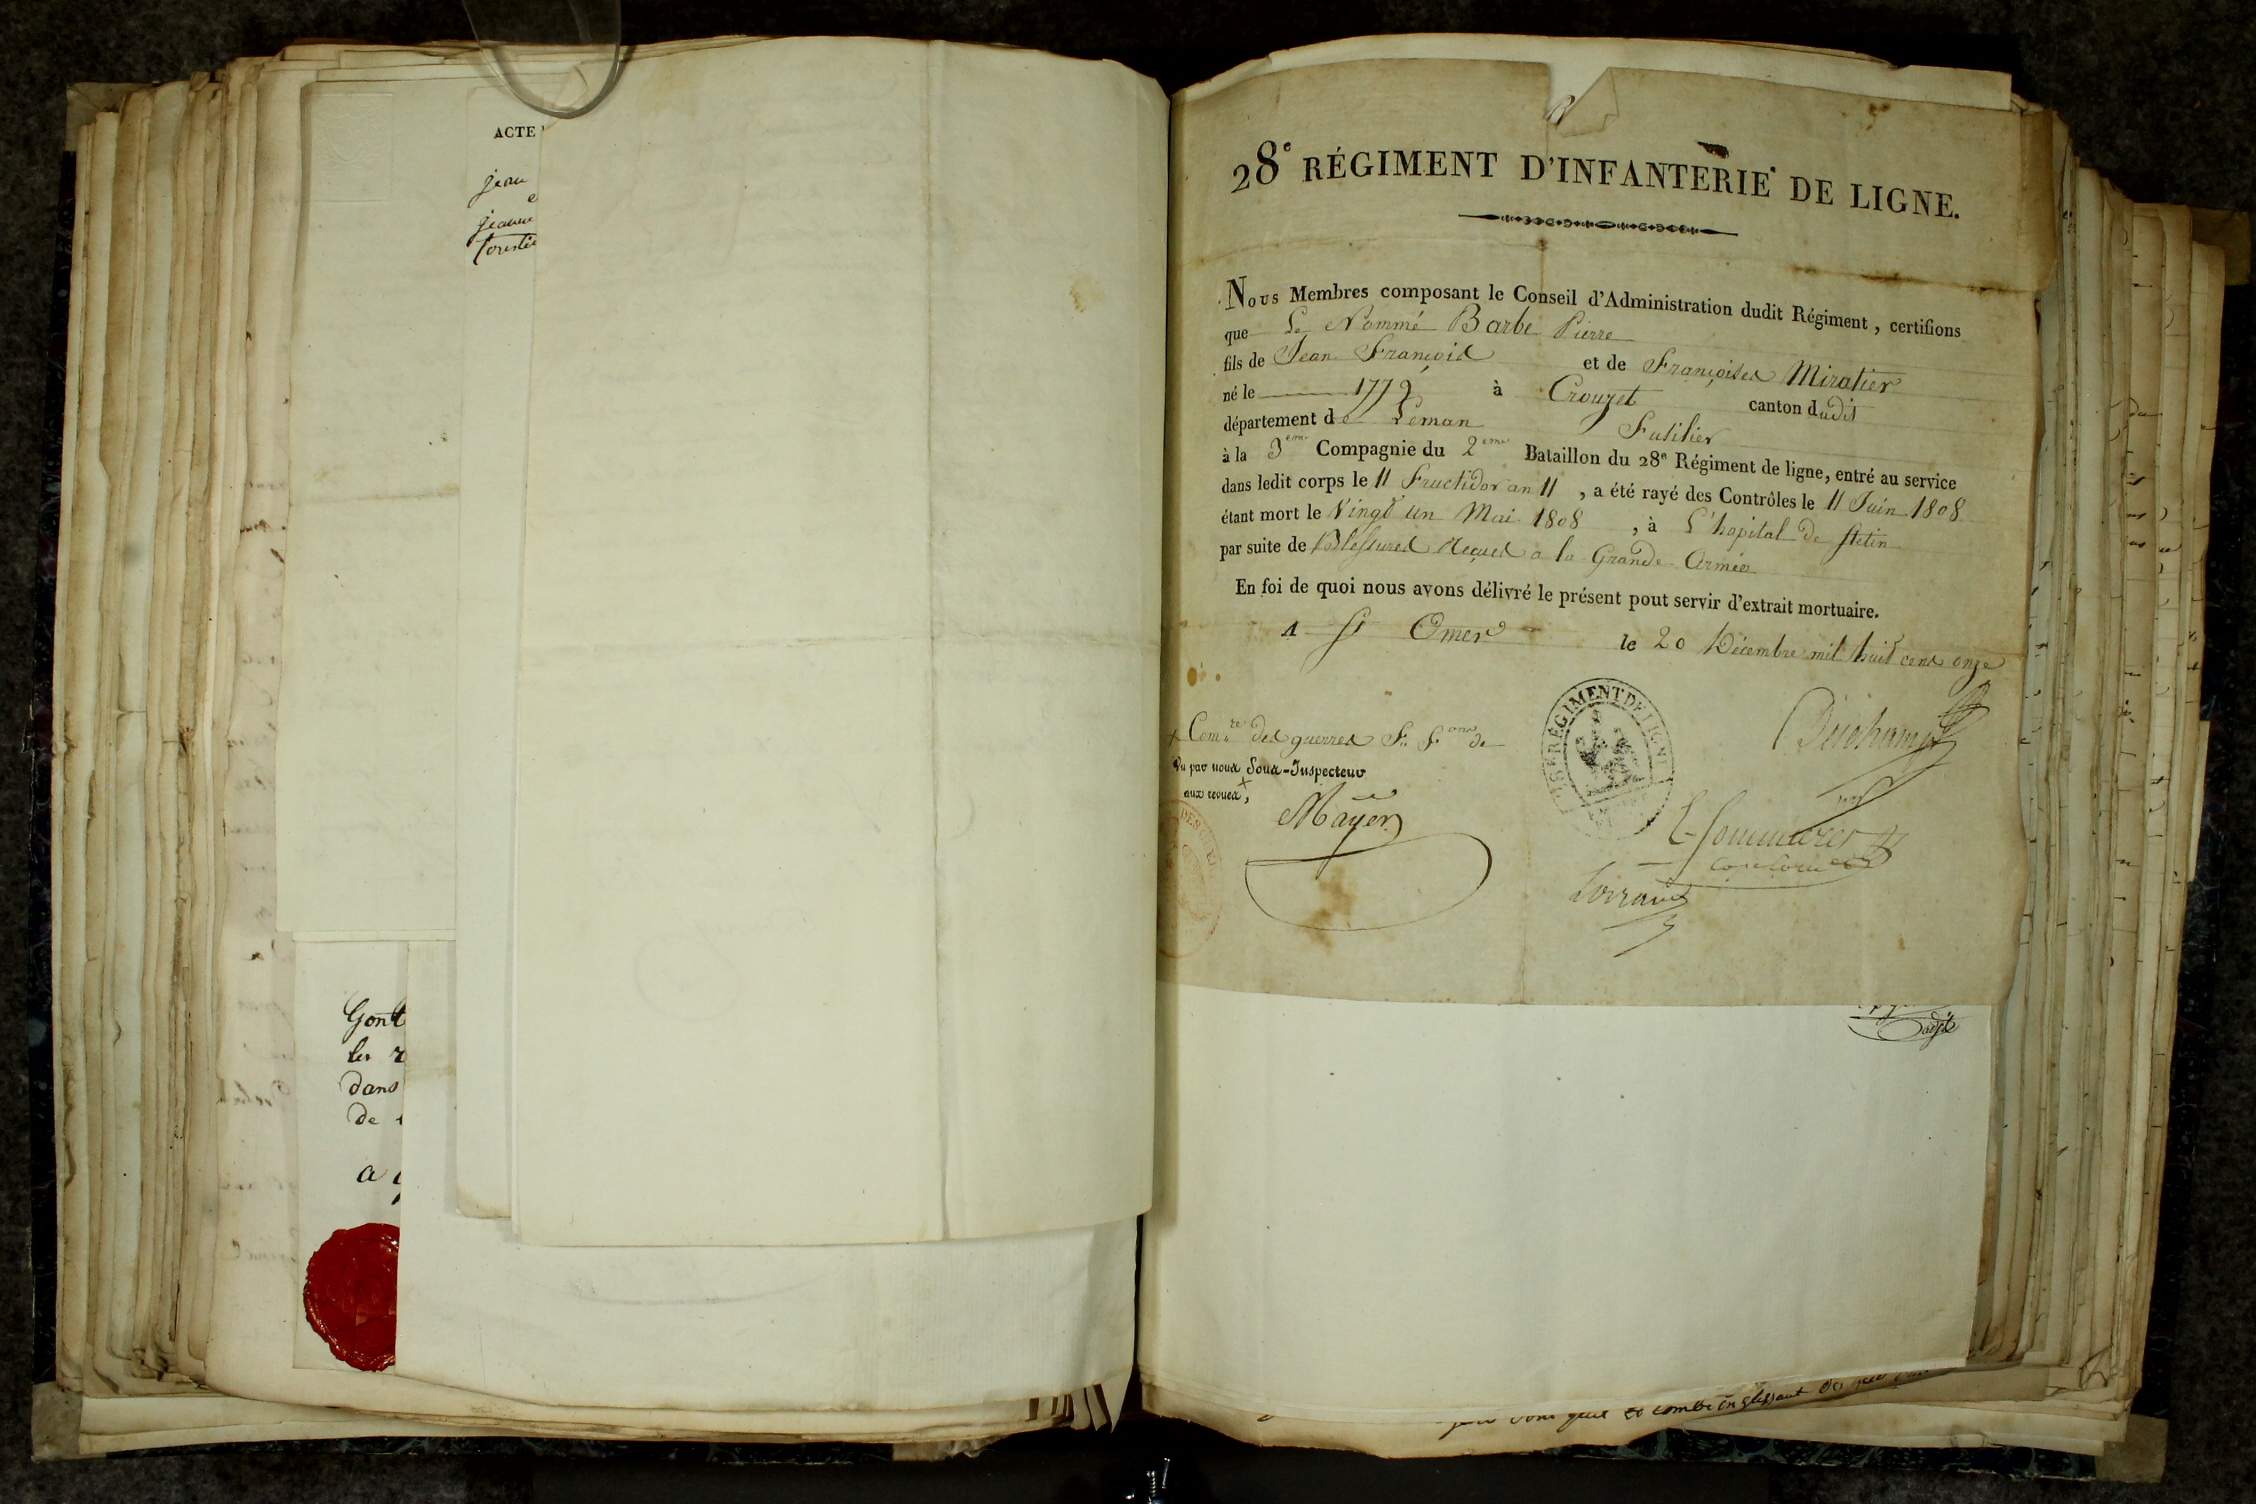 ACTE
jean
e
jeanne
Gont
les r
dans
de
a
28e RÉGIMENT D'INFANTERIE DE LIGNE.
Nous Membres composant le Conseil d'Administration dudit Régiment, certifions
que Le Nommé Barbe Pierre
fils de Jean François et de Françoises Miratier
né le 1779 à Crouzet canton dudit
département de Leman Fusilier
à la 3eme Compagnie du 2eme Bataillon du 28e Régiment de ligne, entré au service
dans ledit corps le 11 Fructidor an 11, a été rayé des Contrôles le 11 Juin 1808
étant mort le Vingt un Mai 1808, à L'hopital de Stetin
par suite de Blessures Reçues a la Grande Armée
En foi de quoi nous avons délivré le présent pout servir d'extrait mortuaire.
A St Omer le 20 Décembre mil huit cent onze
RÉGIMENT DE LIGNE
+ Comre des guerres F. fons de
Vu par nous Sous-Inspecteur
aux revues +,
Mayer
Lorrain